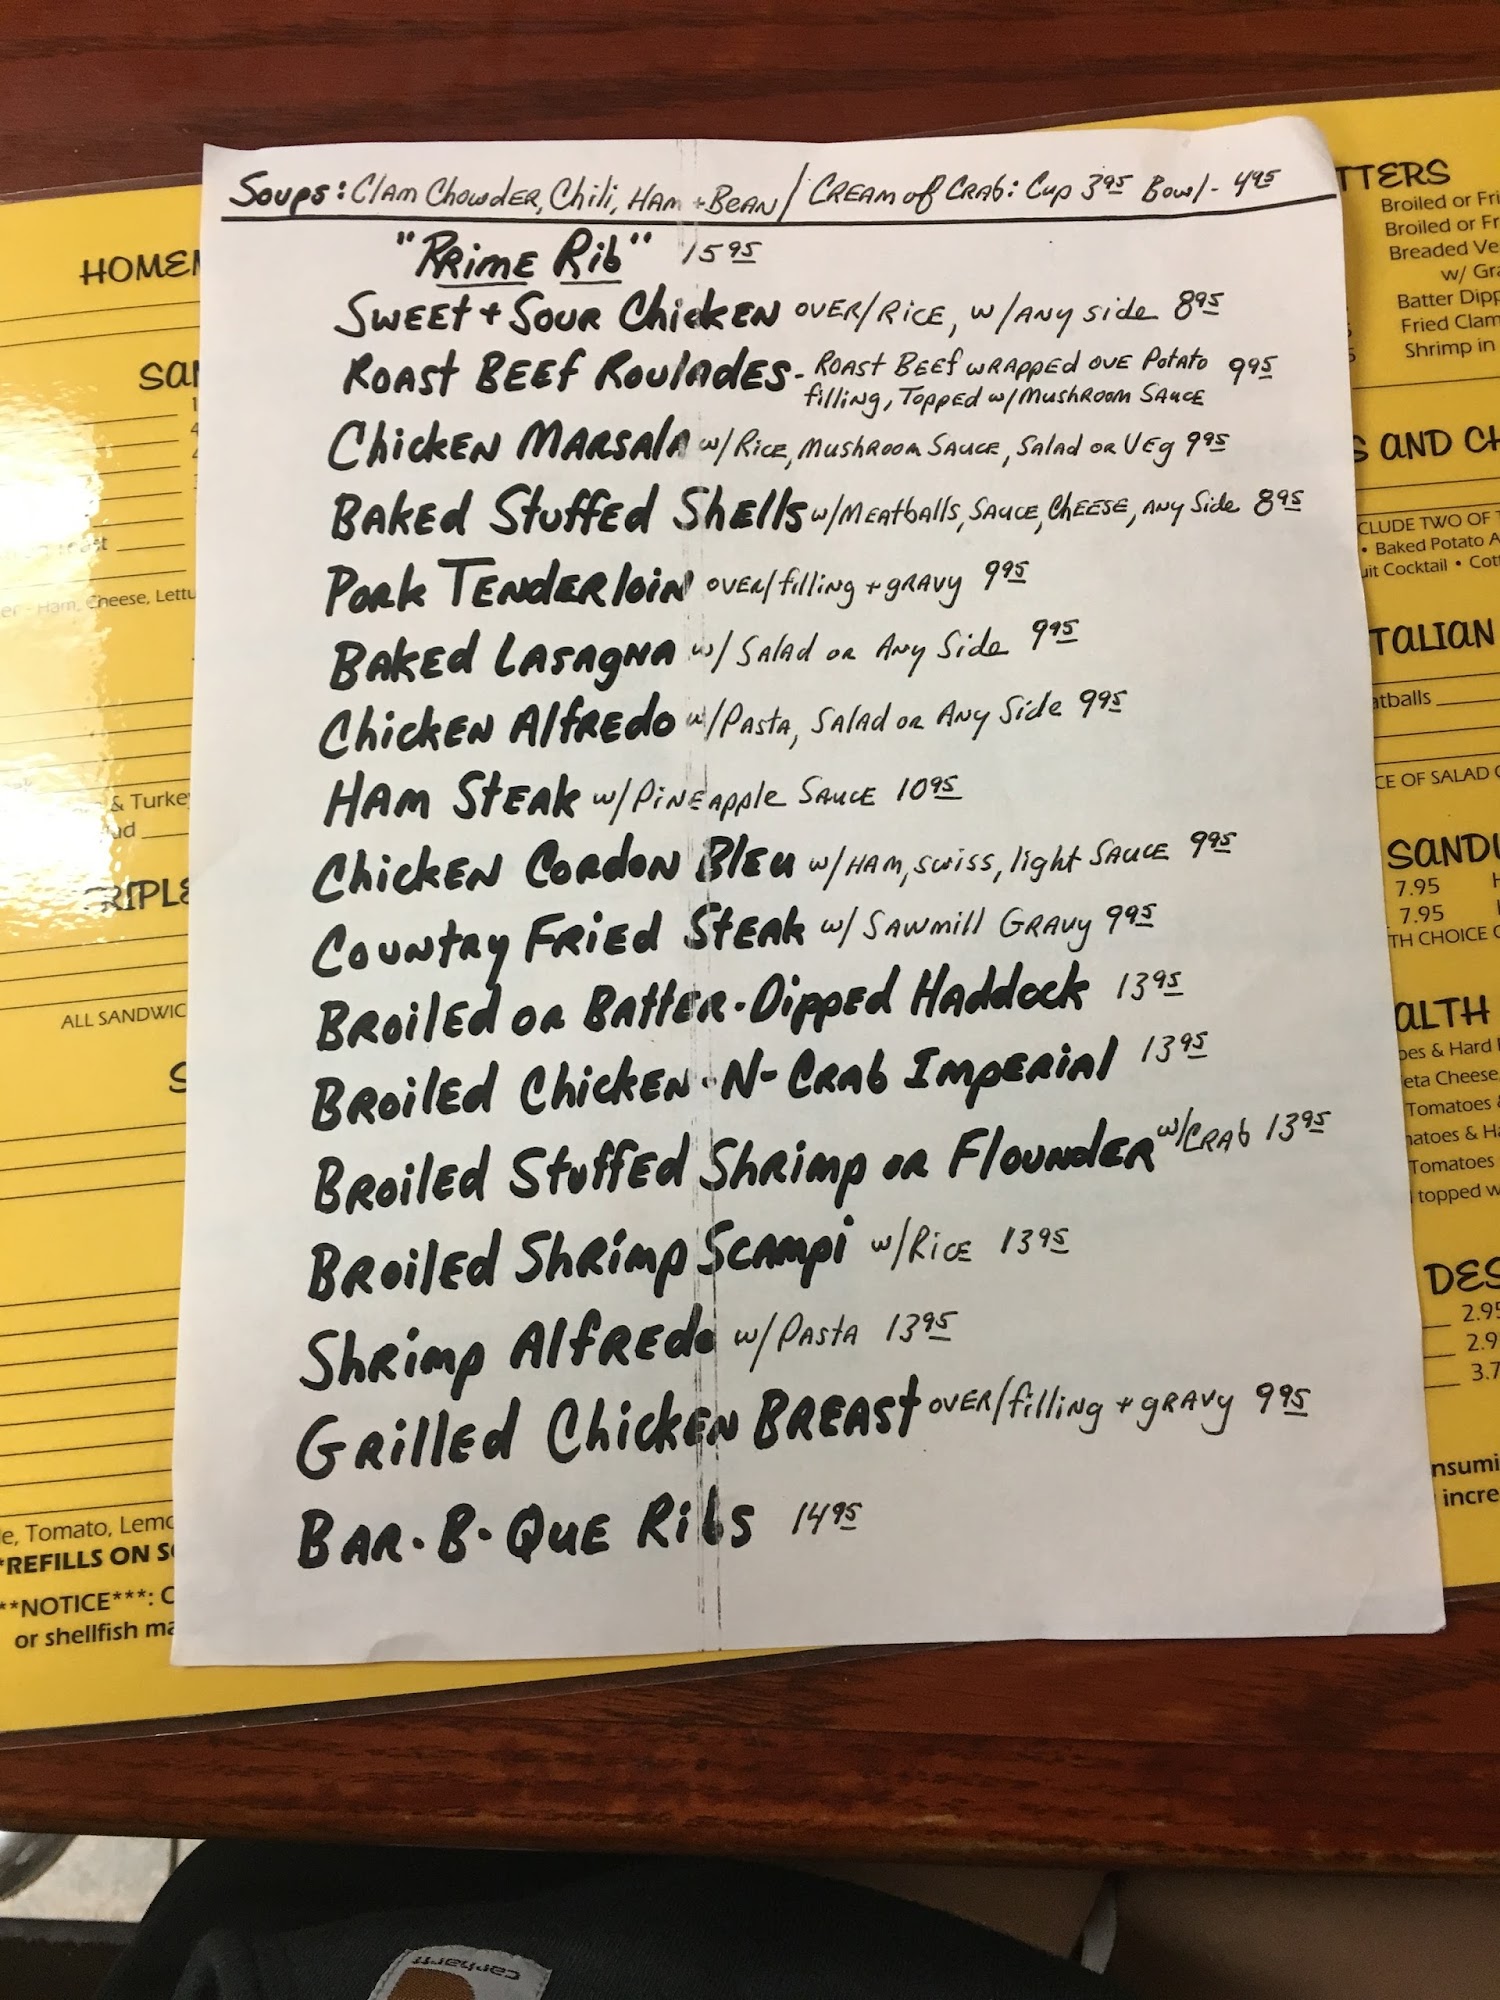 Soups: Clam Chowder, Chili, Ham + Bean / Cream of Crab: Cup 3.95 Bowl - 4.95
"Prime Rib" 15.95
Sweet + Sour Chicken over/Rice, w/Any side 8.95
Roast Beef Roulades - Roast Beef wrapped ove Potato 9.95
filling, Topped w/Mushroom Sauce
Chicken Marsala w/Rice, Mushroom Sauce, Salad or Veg 9.95
Baked Stuffed Shells w/Meatballs, Sauce, Cheese, Any Side 8.95
Pork Tenderloin over/filling + gravy 9.95
Baked Lasagna w/ Salad or Any Side 9.95
Chicken Alfredo w/Pasta, Salad or Any Side 9.95
Ham Steak w/Pineapple Sauce 10.95
Chicken Cordon Bleu w/Ham, swiss, light Sauce 9.95
Country Fried Steak w/ Sawmill Gravy 9.95
Broiled or Batter-Dipped Haddock 13.95
Broiled Chicken-N-Crab Imperial 13.95
Broiled Stuffed Shrimp or Flounder w/Crab 13.95
Broiled Shrimp Scampi w/Rice 13.95
Shrimp Alfredo w/Pasta 13.95
Grilled Chicken Breast over/filling + gravy 9.95
Bar-B-Que Ribs 14.95
HOMEM
SAN
er - Ham, Cheese, Lettu
& Turkey
RIPLE
ALL SANDWIC
S
le, Tomato, Lemo
*REFILLS ON SO
**NOTICE***: C
or shellfish ma
TTERS
Broiled or Fri
Broiled or Fr
Breaded Ve
w/ Gra
Batter Dipp
Fried Clam
Shrimp in
S AND CH
CLUDE TWO OF T
• Baked Potato A
uit Cocktail • Cott
TALIAN
atballs
CE OF SALAD O
SANDW
7.95 H
7.95
TH CHOICE O
ALTH
oes & Hard
eta Cheese,
Tomatoes &
matoes & Ha
Tomatoes
topped w
DES
2.95
2.9
3.7
nsumi
incre
carhartt